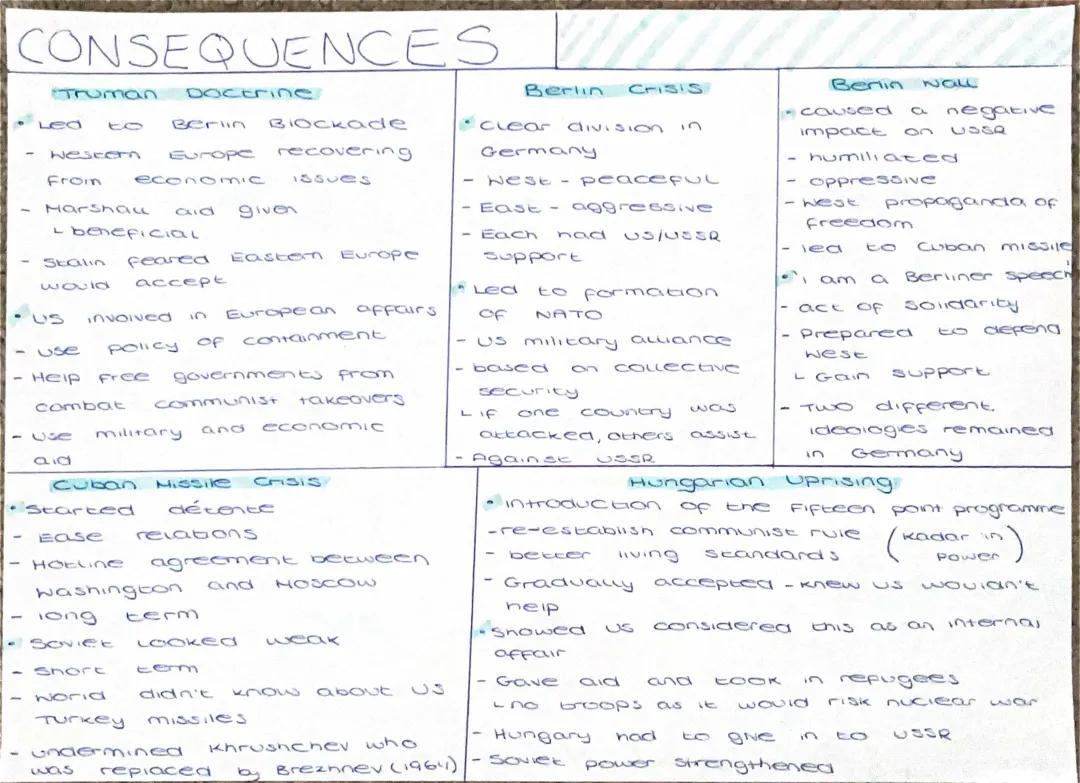 CONSEQUENCES
Truman Doctrine
• Led to Berlin Blockade
- Western Europe recovering
from economic issues
- Marshall aid given
└ beneficial
- Stalin feared Eastern Europe
would accept
• US involved in European affairs
- use policy of containment
- Help free governments from
combat communist takeovers
- Use military and economic
aid
Berlin Crisis
• Clear division in
Germany
- West - peaceful
- East - aggressive
- Each had US/USSR
support
• Led to formation
of NATO
- US military alliance
- based on collective
security
└ if one country was
attacked, others assist
- Against USSR
Berlin Wall
• caused a negative
impact on USSR
- humiliated
- oppressive
- West propaganda of
freedom
- led to Cuban missile
• i am a Berliner speech
- act of solidarity
- Prepared to defend
West
└ Gain support
- Two different
ideologies remained
in Germany
Cuban Missile Crisis
• Started détente
- Ease relations
- Hotline agreement between
Washington and Moscow
- long term
• Soviet Looked weak
- Short term
- World didn't know about US
Turkey missiles
- undermined Khrushchev who
was replaced by Brezhnev (1964)
Hungarian Uprising
• introduction of the fifteen point programme
- re-establish communist rule (Kadar in
- better living standards power)
- Gradually accepted - knew US wouldn't
help
• Showed US considered this as an internal
affair
- Gave aid and took in refugees
└ no troops as it would risk nuclear war
- Hungary had to give in to USSR
- Soviet power strengthened